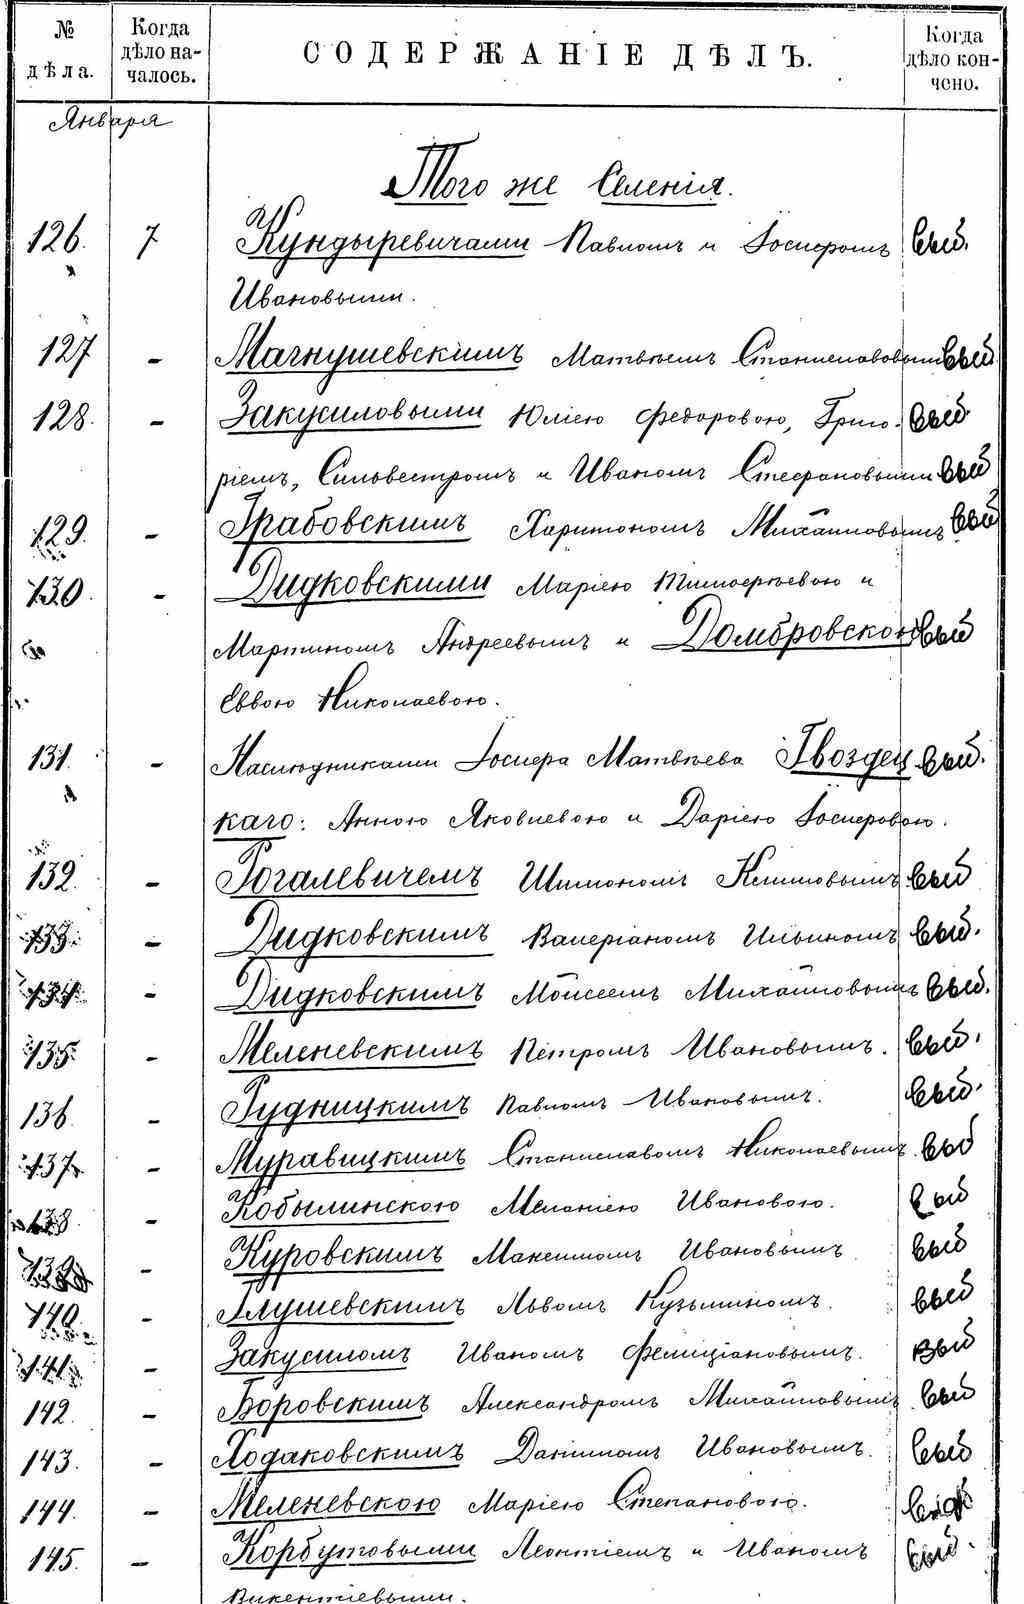 № дѣла.
Когда дѣло на-
чалось.
СОДЕРЖАНІЕ ДѢЛЪ.
Когда дѣло кон-
чено.
Января
Того же Селенія.
126. 7 Кундыревичами Павломъ и Іосифомъ выб.
Ивановыми.
127 - Магнушевскимъ Матвѣемъ Станиславовымъ выб
128. - Закусиловыми Юліею Федоровою, Григо- выб
ріемъ, Сильвестромъ и Иваномъ Стефановыми выб
129. - Грабовскимъ Харитономъ Михайловымъ выб
130. - Дидковскими Маріею Тимофѣевою и
Мартиномъ Андреевымъ и Домбровскою выб
Еввою Николаевою.
131. - Наслѣдниками Іосифа Матвѣева Гвоздец выб.
каго: Анною Яковлевою и Даріею Іосифовою.
132. - Рогалевичемъ Шимономъ Климовымъ выб
133. - Дидковскимъ Валеріаномъ Ильиномъ выб.
134. - Дидковскимъ Мойсеемъ Михайловымъ выб.
135. - Меленевскимъ Петромъ Ивановымъ. выб.
136 - Рудницкимъ Павломъ Ивановымъ. выб.
137 - Муравицкимъ Станиславомъ Николаевымъ. выб
138 - Кобылинскою Меланіею Ивановою. выб
139 - Куровскимъ Максимомъ Ивановымъ выб
140. - Глушевскимъ Львомъ Кузьминомъ. выб
141. - Закусиломъ Иваномъ Фелиціановымъ. выб
142. - Боровскимъ Александромъ Михайловымъ выб
143. - Ходаковскимъ Даниломъ Ивановымъ. выб
144. - Меленевскою Маріею Степановою. выб
145. - Корбутовыми Леонтіемъ и Иваномъ выб.
Викентіевыми.